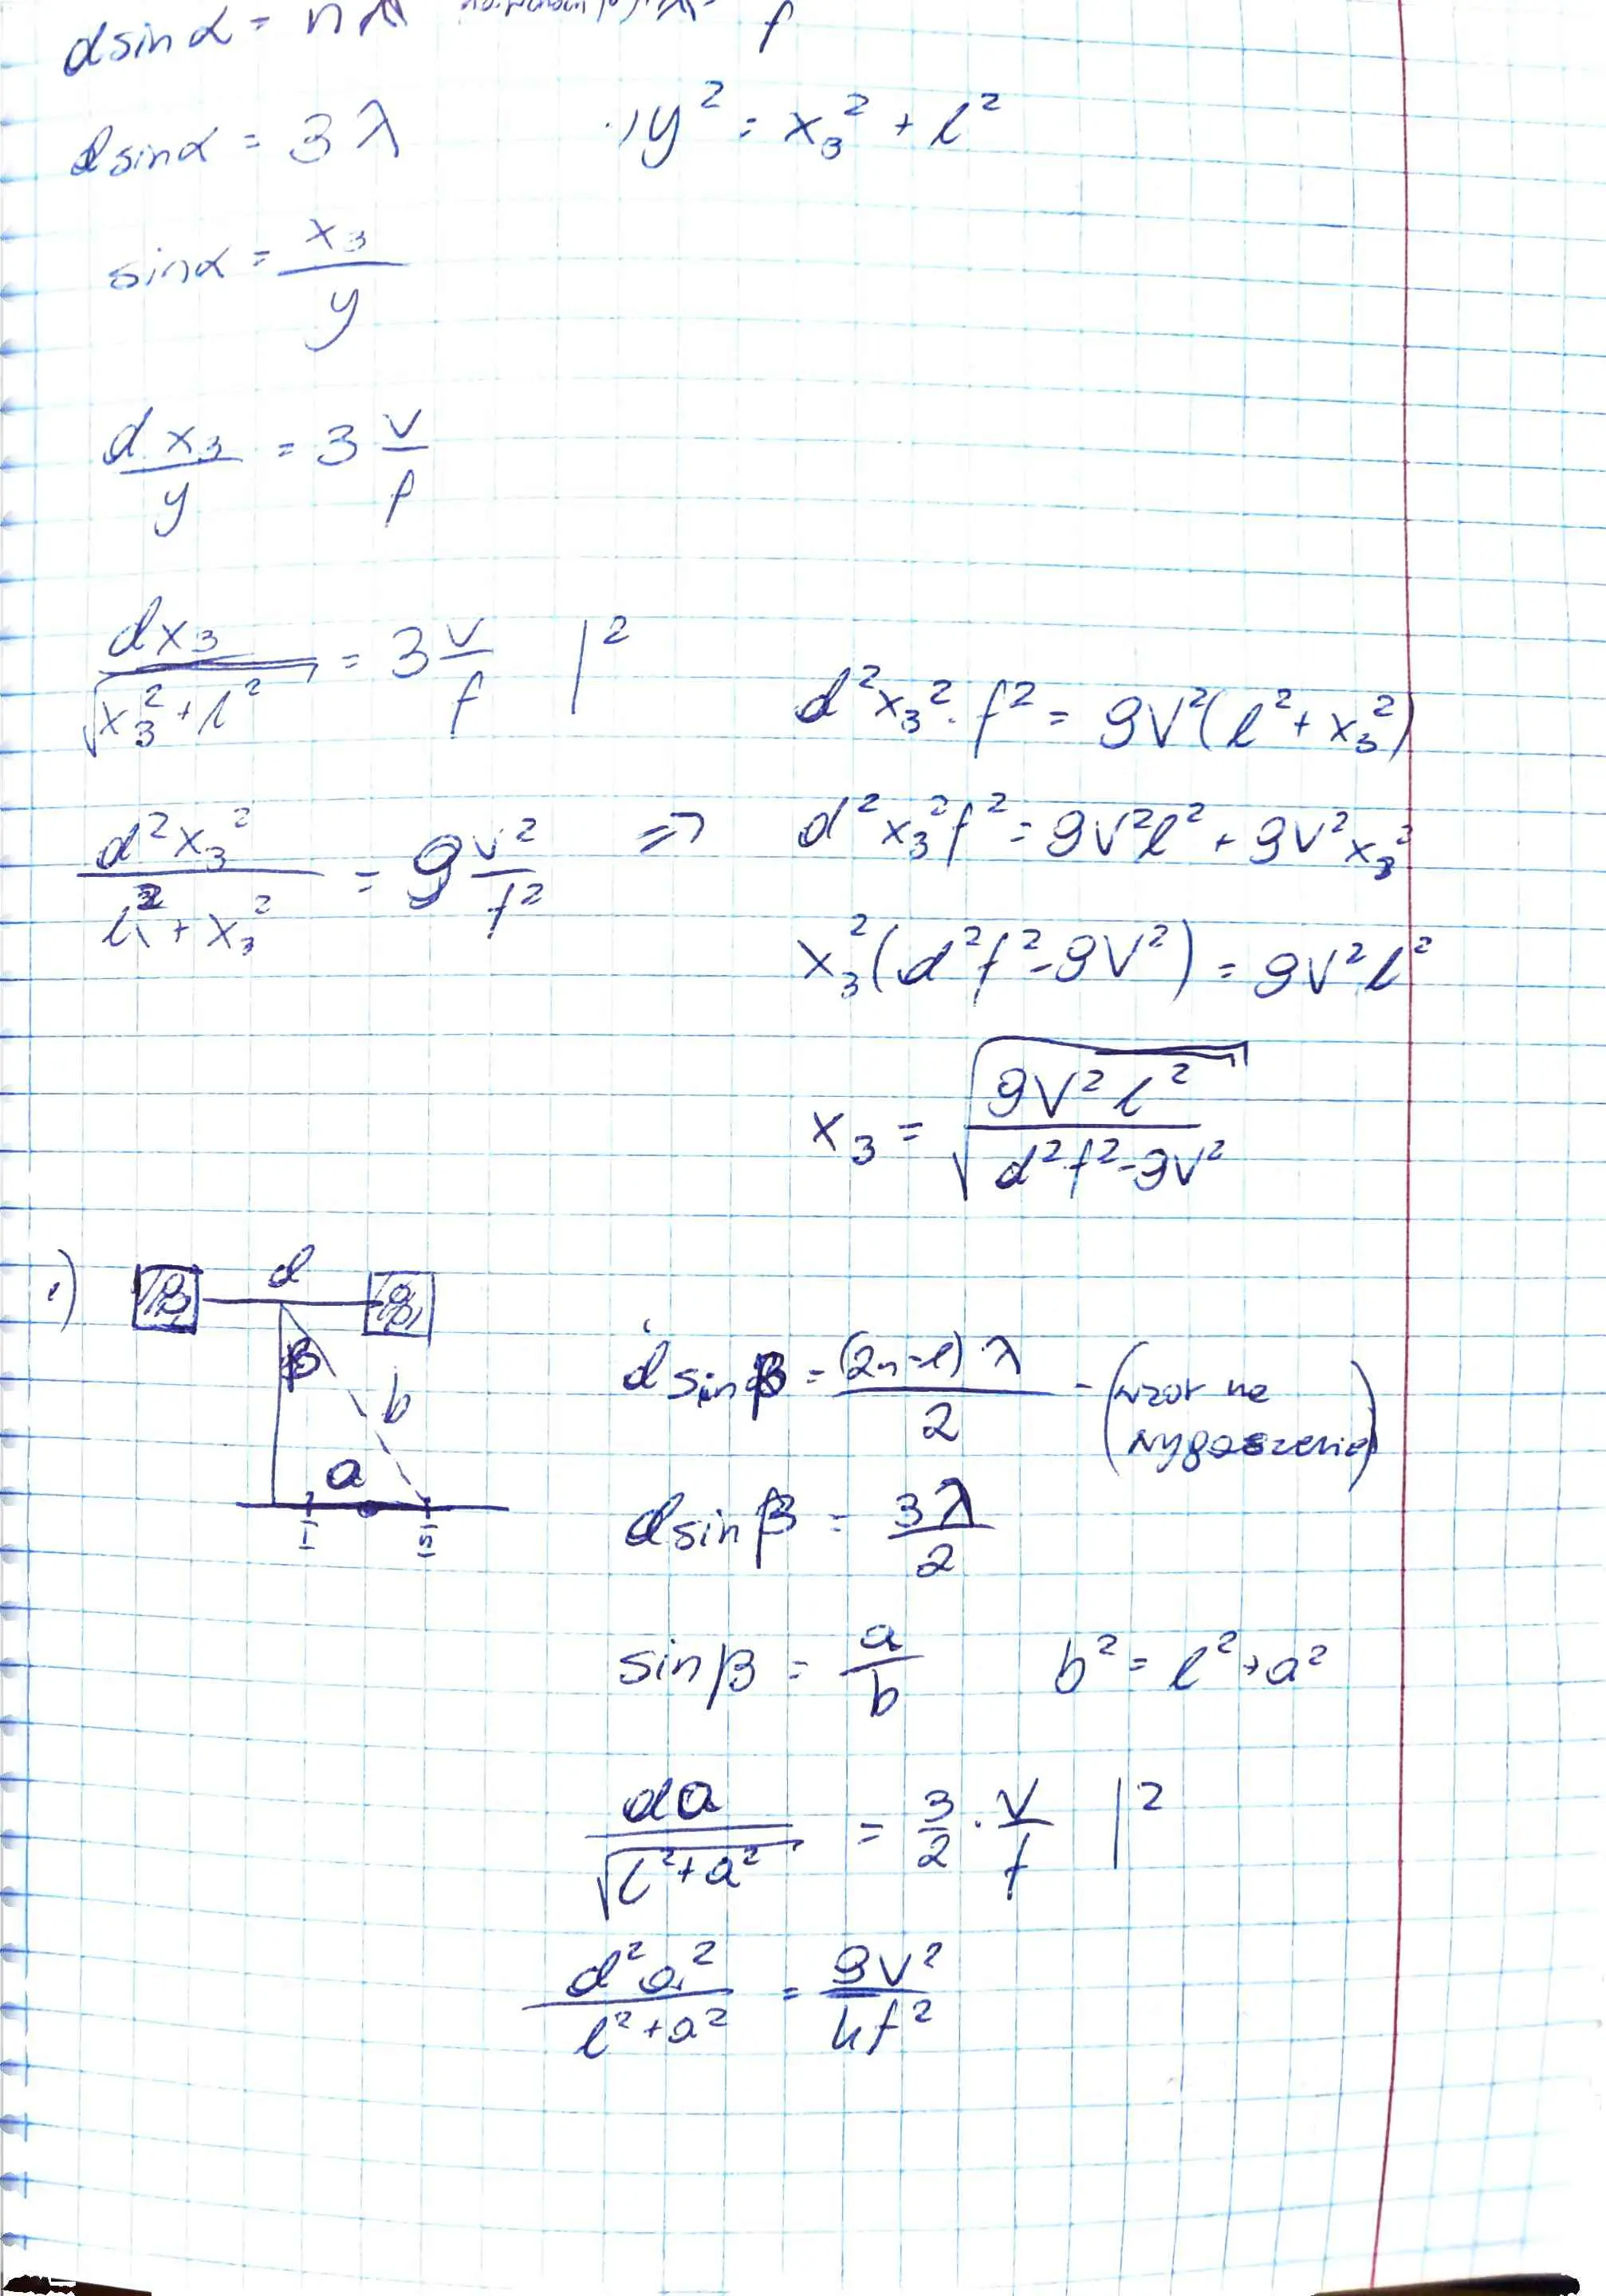 d sin α = nλ f
d sin α = 3λ ·) y² = x₃² + l²
sin α = x₃/y
d x₃/y = 3 v/f
dx₃/√(x₃² + l²) = 3 v/f |²
d²x₃²·f² = 9v²(l² + x₃²)
d²x₃²/(l² + x₃²) = 9 v²/f² => d²x₃²f² = 9v²l² + 9v²x₃²
x₃²(d²f² - 9v²) = 9v²l²
x₃ = √(9v²l²/(d²f² - 9v²))
d
β
b
a
d sin β = (2n-1)λ/2 - (wzór na wygaszenie)
d sin β = 3λ/2
sin β = a/b b² = l² + a²
da/√(l² + a²) = 3/2 · v/f |²
d²a²/(l² + a²) = 9v²/4f²